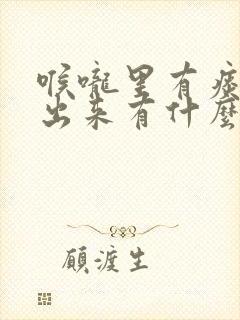 喉嚨里有痰
出来有什麼
顧渡生